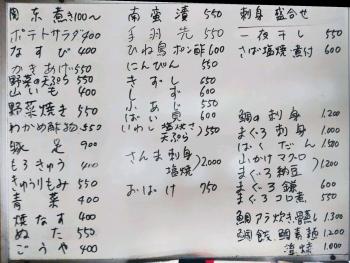 関東煮き100〜
ポテトサラダ400
なすび 400
かきあげ550
野菜の天ぷら550
山いも 400
野菜焼き 550
わかめ酢物 550
豚足 900
もろきゅう 400
きゅうりもみ 550
青菜 400
焼なす 400
ぬた 550
ごうや 400
南蛮漬 550
手羽先 550
ひね鳥ポン酢 600
にんぴん 550
きずし 550
しず 600
ふあじ 550
ばい貝 600
いわし 塩焼き 天ぷら 550
さんま 刺身 塩焼 2,000
おばけ 750
刺身盛合せ
一夜干し 550
さば塩焼 煮付 600
鯛の刺身 1.200
まぐろ刺身 1.000
はくだん 1.500
山かけマグロ
まぐろ納豆 1,200
まぐろ鎌 600
まぐろコロ煮 550
鯛アラ炊き 1.300
鯛飯、鯛素麺 1.200
塩焼 1.000